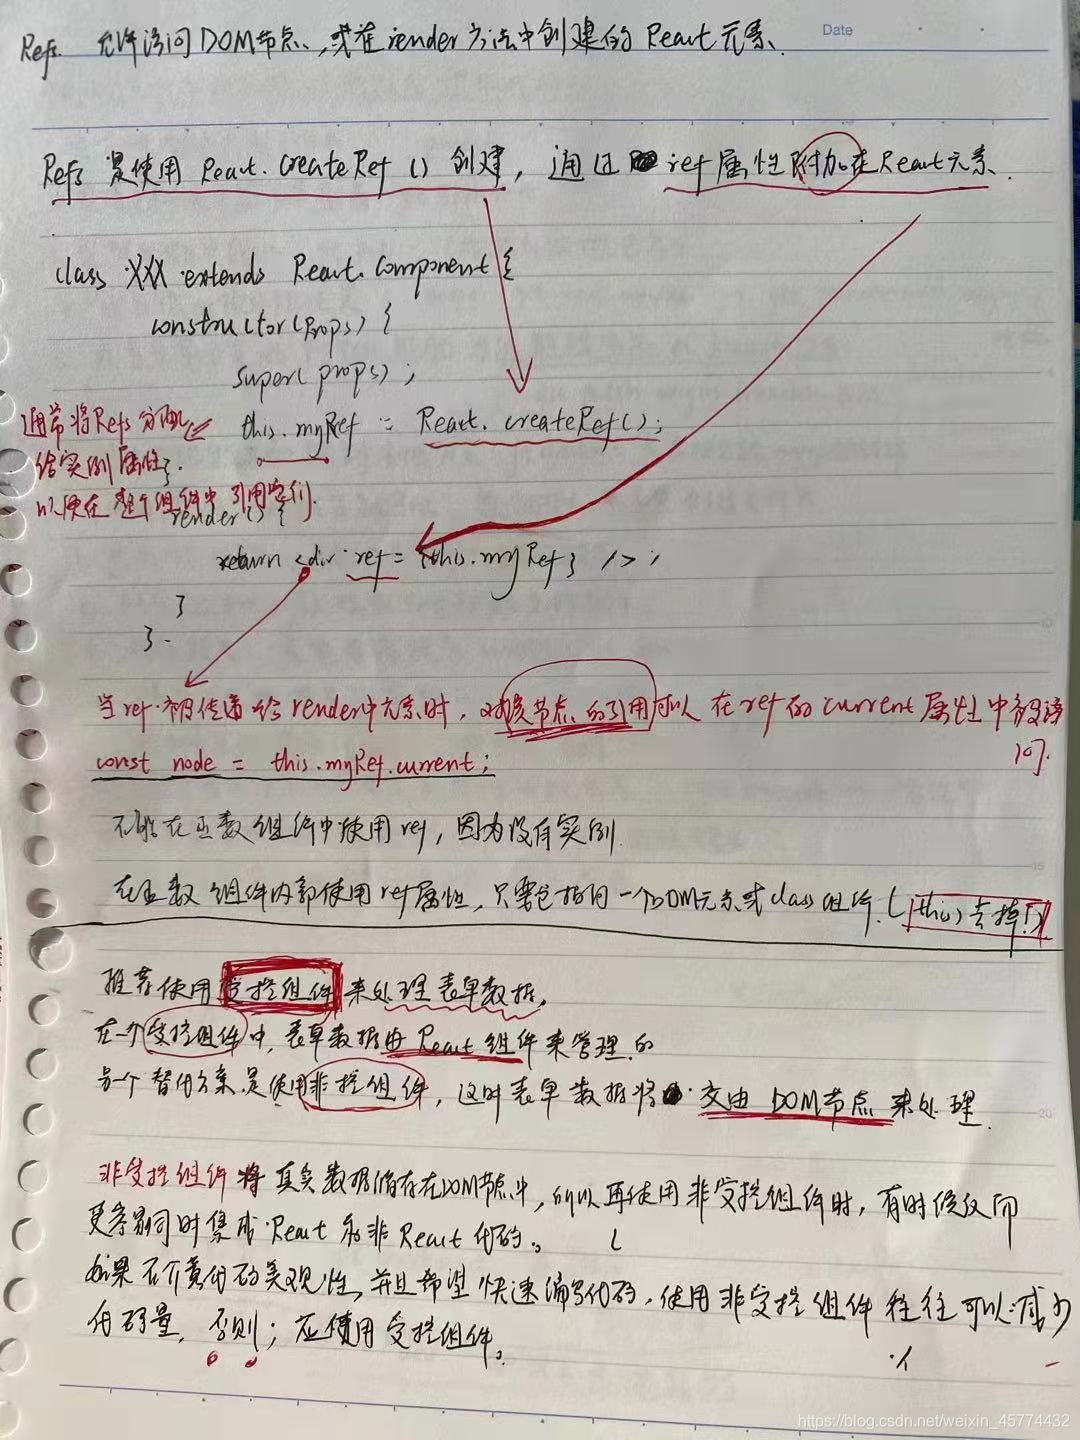 Date
Refs. 允许访问DOM节点、或在render方法中创建的React元素.
Refs 是使用 React.createRef () 创建, 通过 ref属性附加在React元素.
class XXX extends React.Component {
constructor(props) {
super(props);
this.myRef = React.createRef();
通常将Refs分配
给实例属性
}
以便在整个组件中引用它们.
render() {
return <div ref= {this.myRef} />;
}
}
当ref被传递给render中元素时, 对该节点的引用可以在ref的current属性中被访
问.
const node = this.myRef.current;
不能在函数组件中使用ref, 因为没有实例.
在函数组件内部使用ref属性, 只需它指向一个DOM元素或class组件. (this) 去掉!)
推荐使用受控组件来处理表单数据,
在一个受控组件中, 表单数据由React组件来管理的
另一个替代方案是使用非控组件, 这时表单数据将交由DOM节点来处理.
非受控组件将真实数据储存在DOM节点中, 所以再使用非受控组件时, 有时候反而
更容易同时集成React和非React代码。
如果不介意代码美观性, 并且希望快速编写代码, 使用非受控组件往往可以减少
代码量, 否则; 应使用受控组件。
https://blog.csdn.net/weixin_45774432